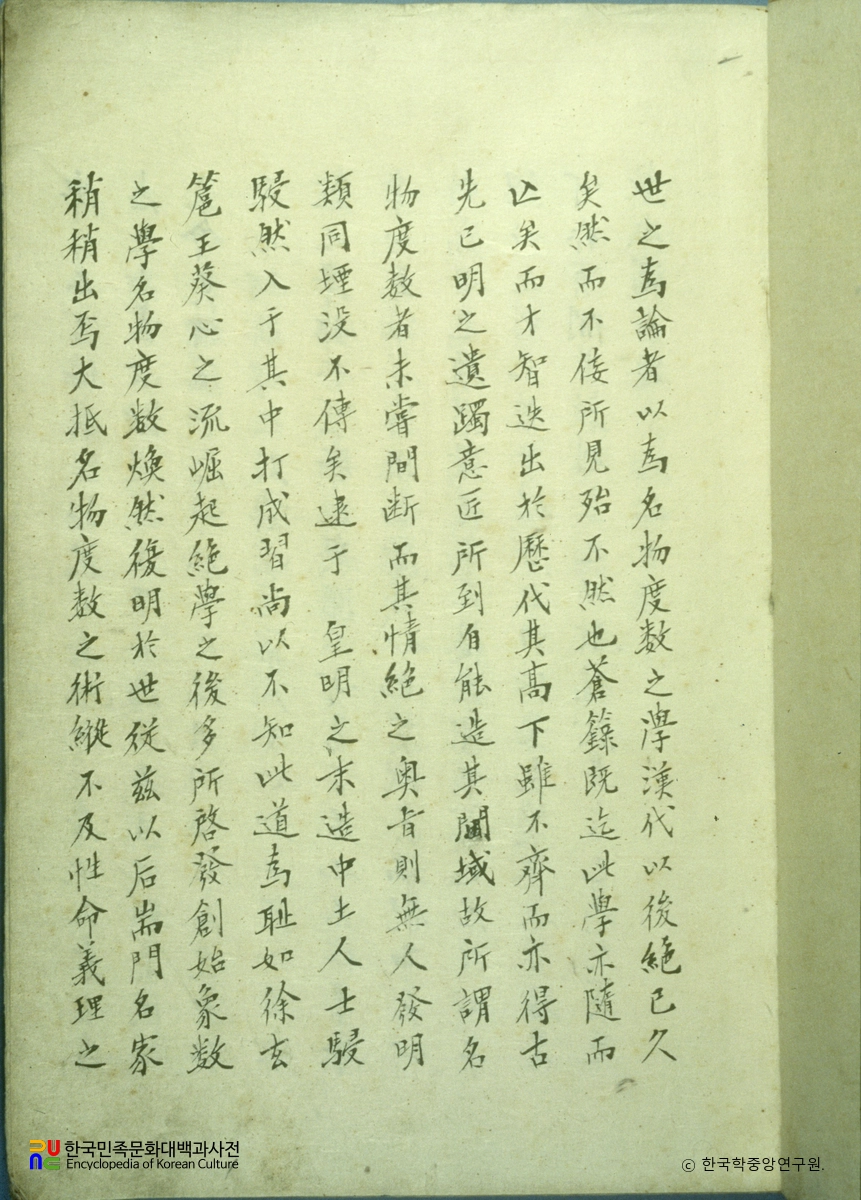 世之爲論者以爲名物度数之學漢代以後絕已久
矣然而不佞所見殆不然也蒼籙既迄此學亦隨而
亡矣而才智迭出於歷代其高下雖不齊而亦得古
先已明之遺躅意匠所到自能造其閫域故所謂名
物度数者未嘗間断而其情絕之奥旨則無人發明
類同堙没不傳矣逮于 皇明之末造中土人士駸
駸然入于其中打成習尚以不知此道爲耻如徐玄
扈王葵心之流崛起絕學之後多所啓發創始象数
之學名物度数煥然復明於世従茲以后耑門名家
稍稍出焉大抵名物度数之術縱不及性命義理之
한국민족문화대백과사전
Encyclopedia of Korean Culture
ⓒ 한국학중앙연구원.